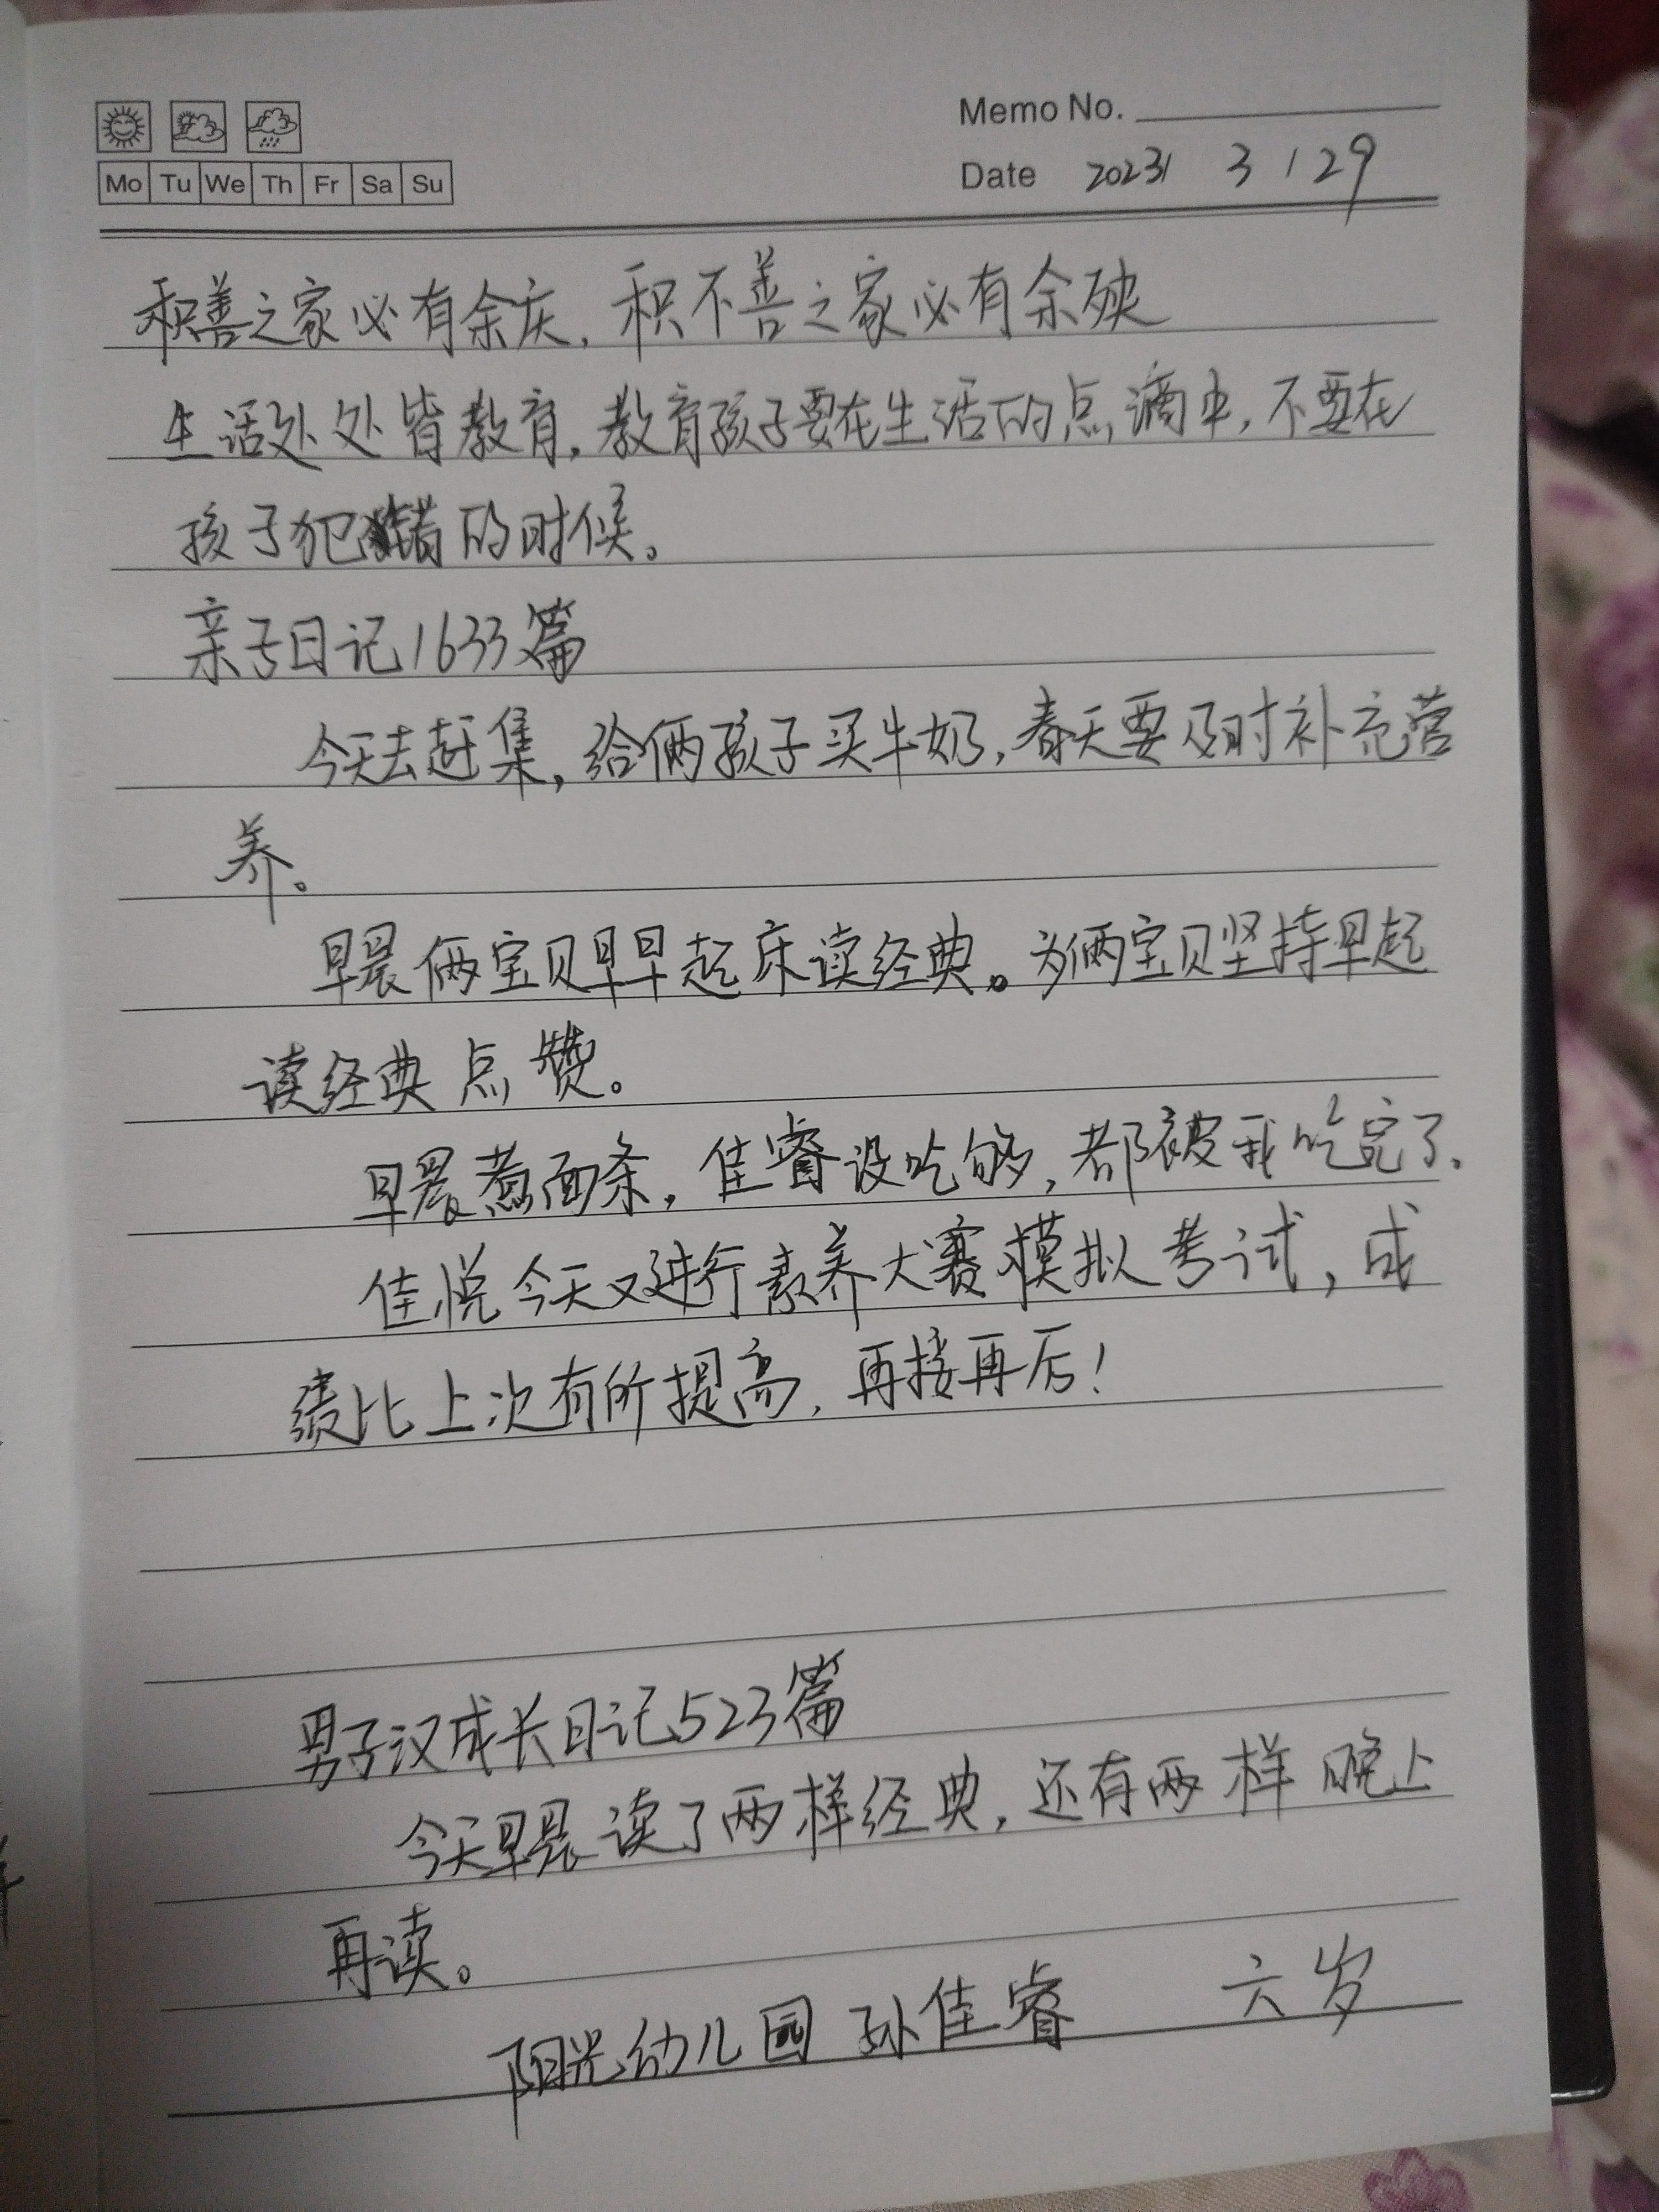 Memo No.
Mo Tu We Th Fr Sa Su
Date 2023/ 3 / 29
积善之家必有余庆，积不善之家必有余殃
生活处处皆教育，教育孩子要在生活的点滴中，不要在
孩子犯错的时候。
亲子日记1633篇
今天去赶集，给俩孩子买牛奶，春天要及时补充营
养。
早晨俩宝贝早早起床读经典。为俩宝贝坚持早起
读经典点赞。
早晨煮面条，佳睿没吃够，都被我吃完了。
佳悦今天又进行素养大赛模拟考试，成
绩比上次有所提高，再接再厉！
男子汉成长日记523篇
今天早晨读了两样经典，还有两样晚上
再读。
阳光幼儿园 孙佳睿 六岁